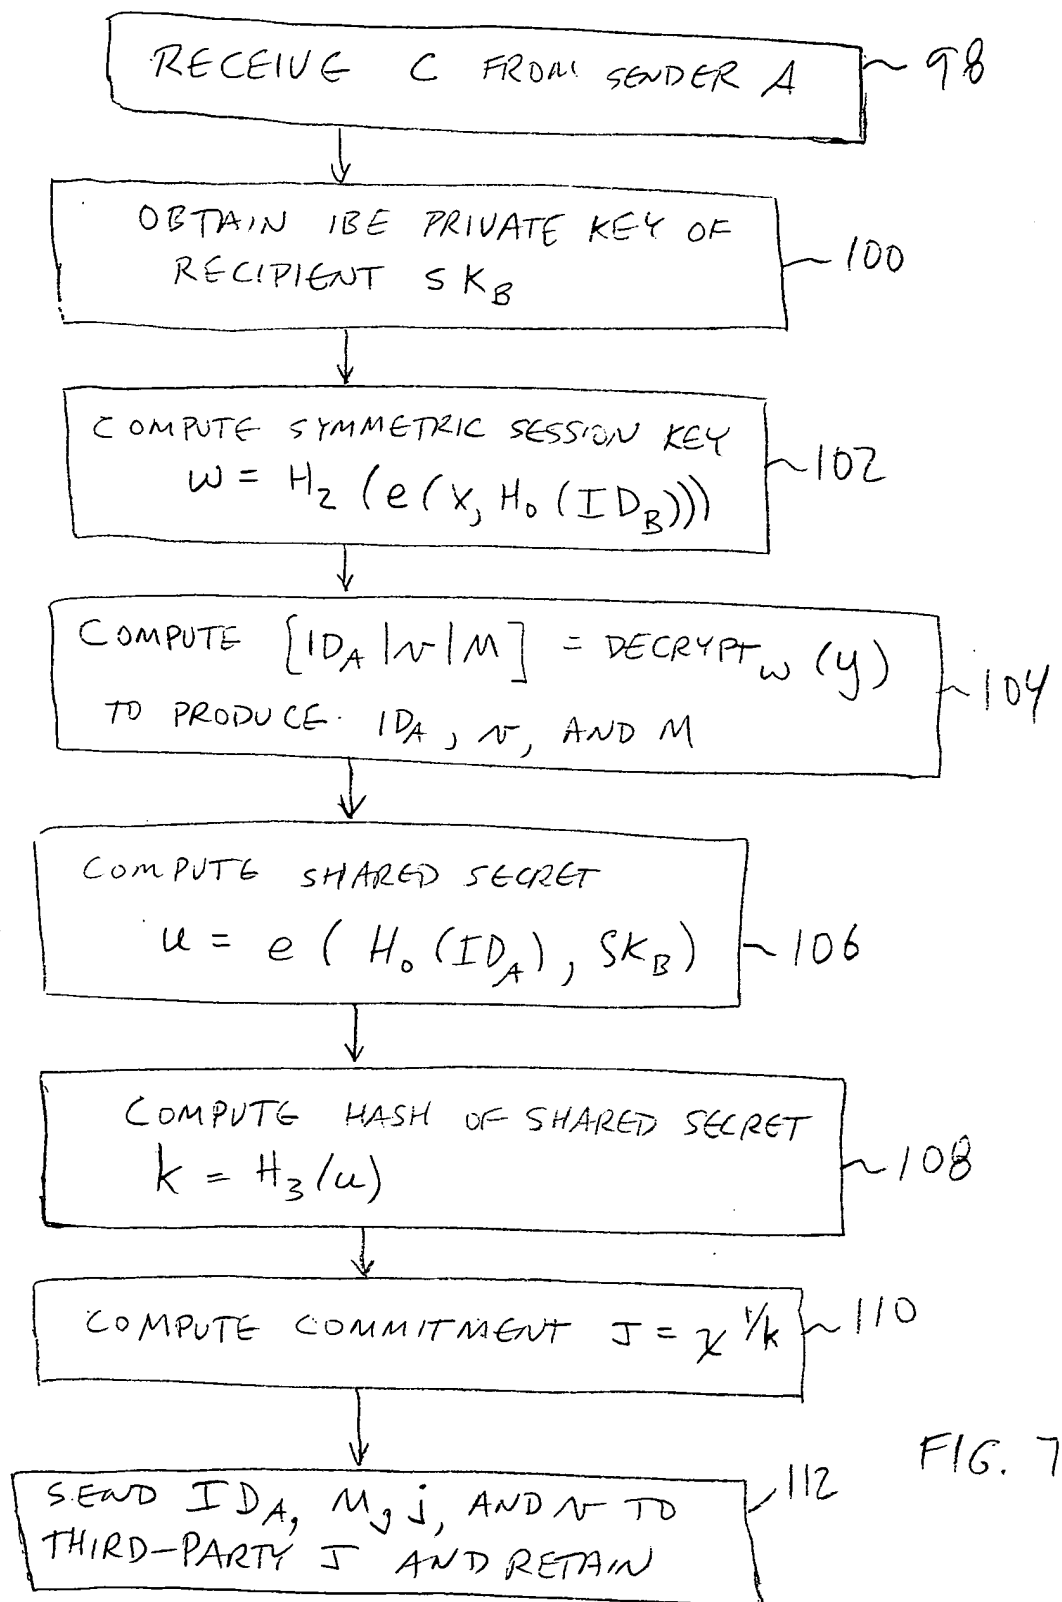 RECEIVE C FROM SENDER A
98
OBTAIN IBE PRIVATE KEY OF
RECIPIENT SK_B
100
COMPUTE SYMMETRIC SESSION KEY
w = H_2 (e(x, H_0 (ID_B)))
102
COMPUTE [ID_A | v | M] = DECRYPT_w (y)
TO PRODUCE ID_A, v, AND M
104
COMPUTE SHARED SECRET
u = e ( H_0 (ID_A), SK_B )
106
COMPUTE HASH OF SHARED SECRET
k = H_3 (u)
108
COMPUTE COMMITMENT J = x^1/k
110
SEND ID_A, M, j, AND v TO
THIRD-PARTY J AND RETAIN
112
FIG. 7